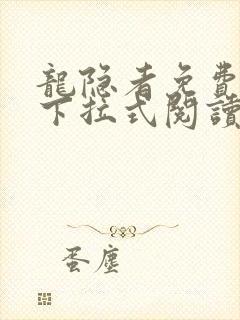 龍隐者免費
下拉式閱讀
蛋塵